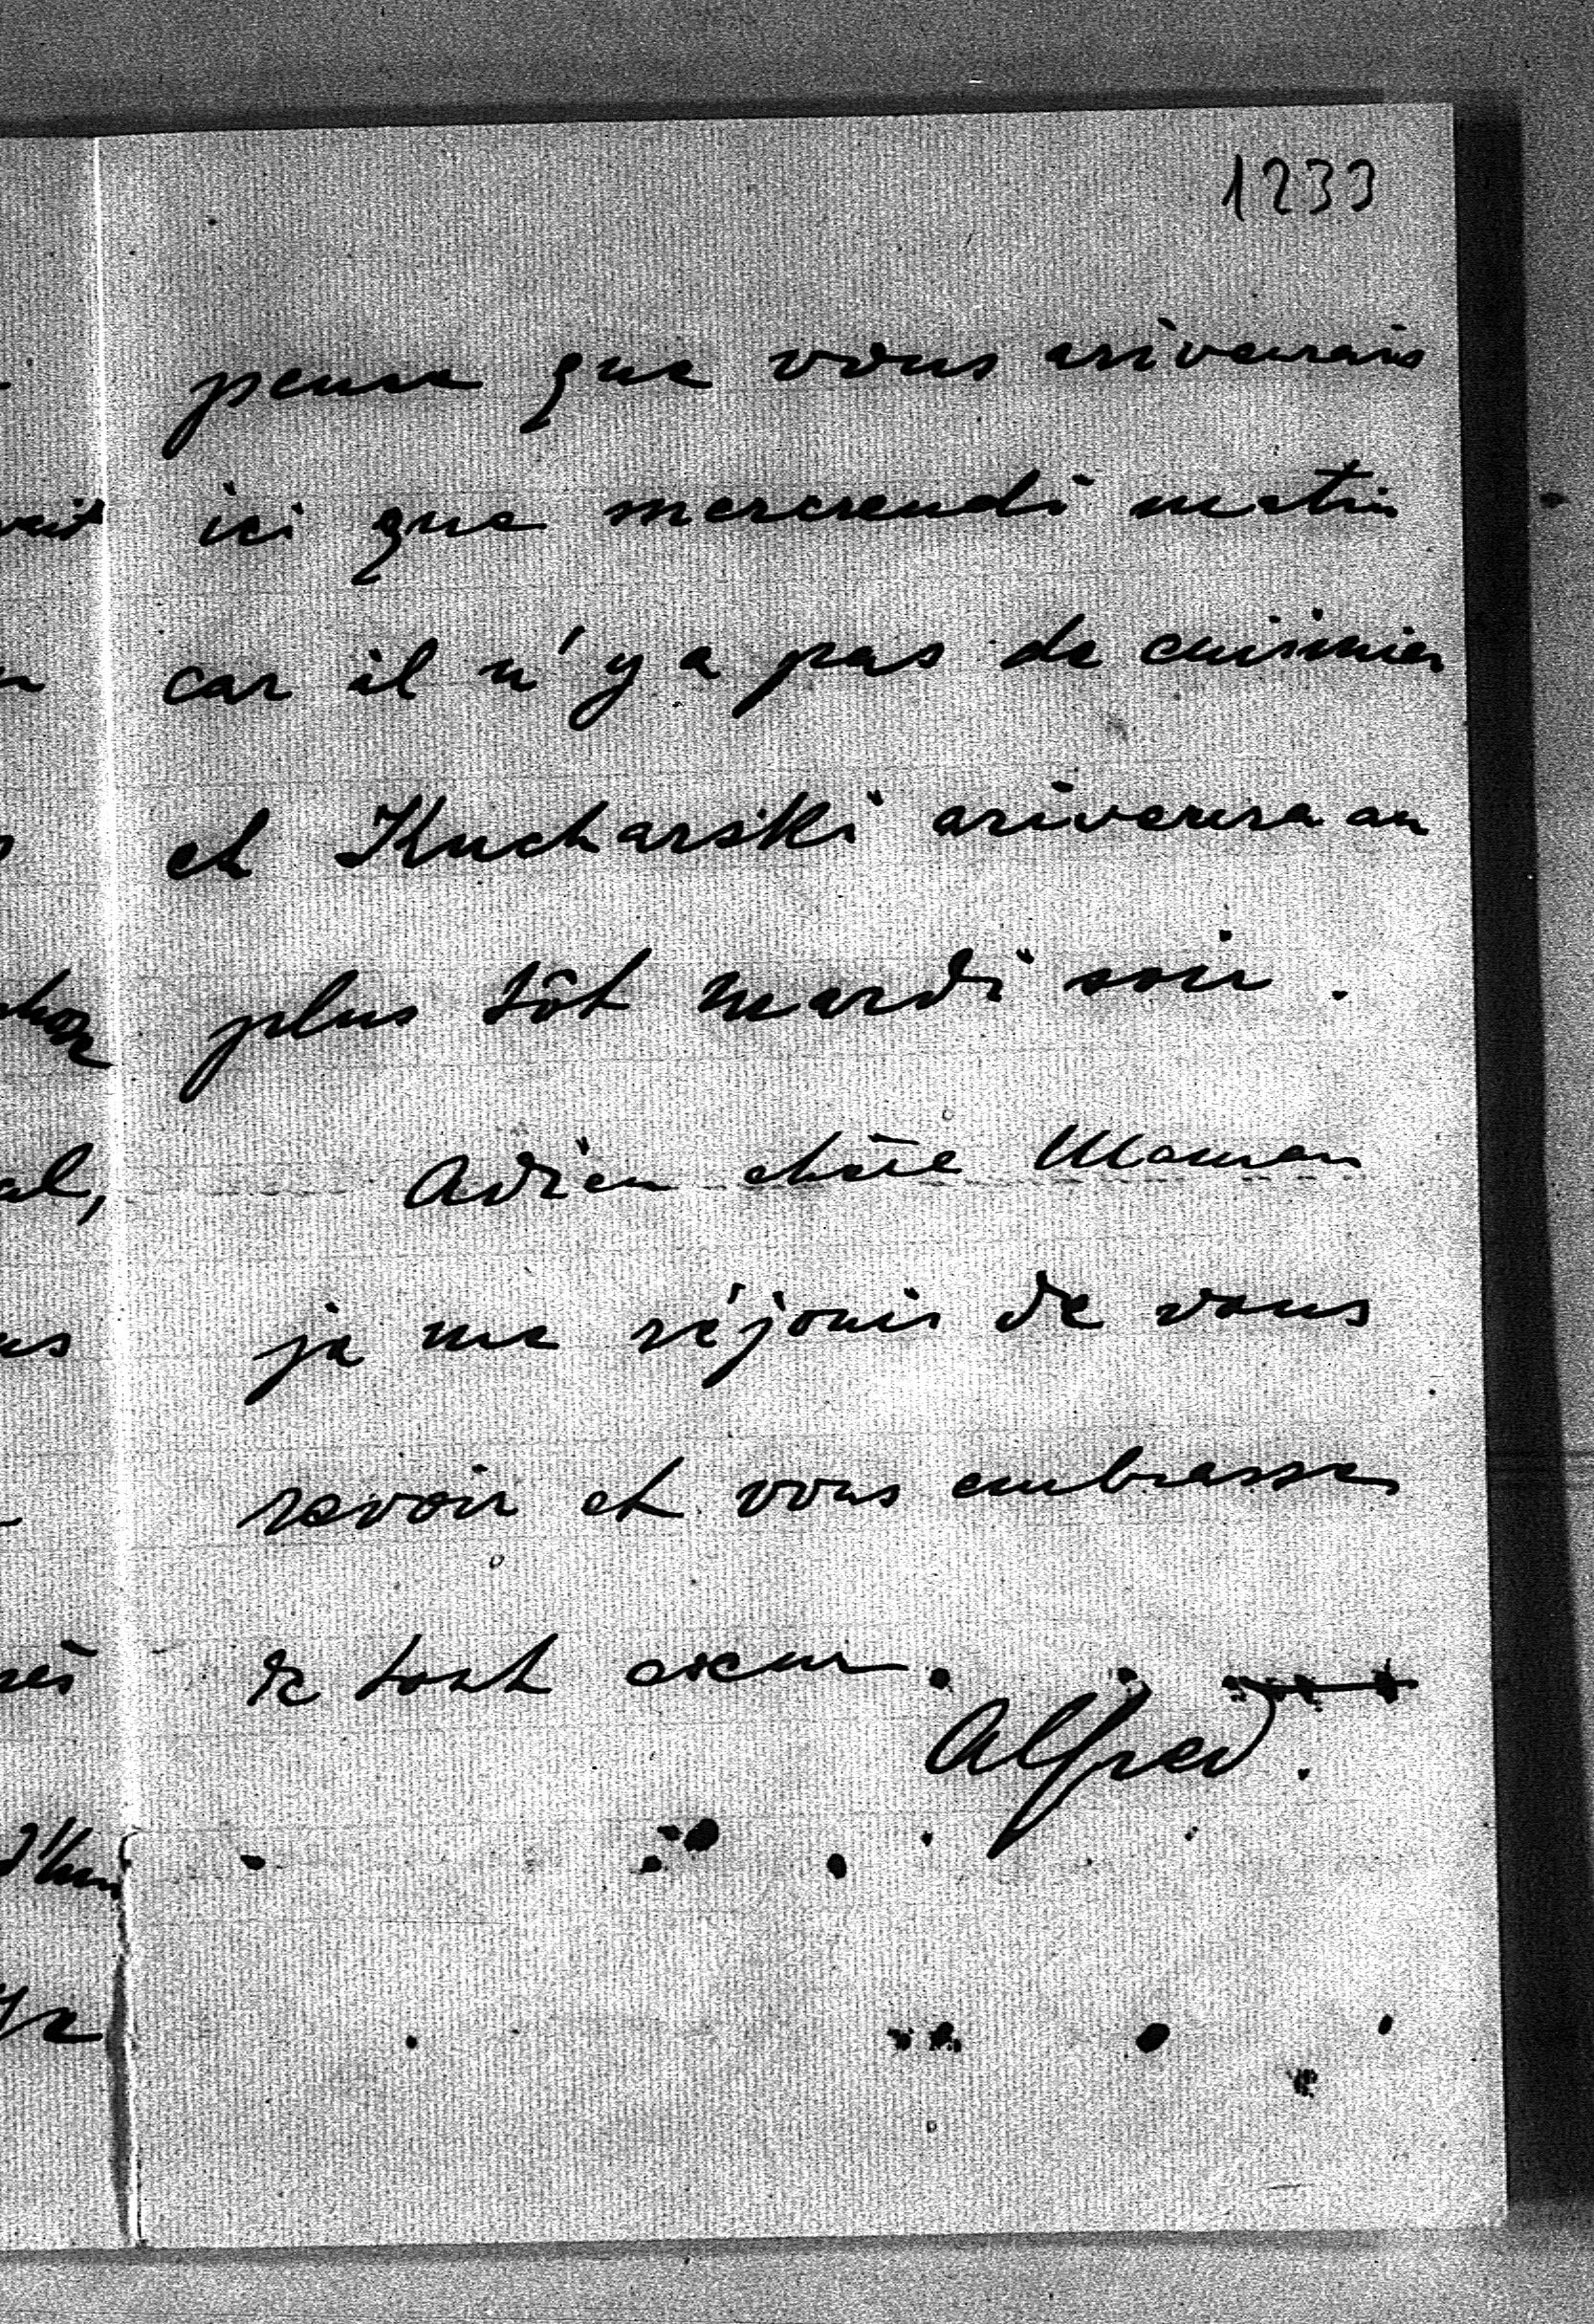 1233
pense que vous ariverais
ici que mercrendi matin
car il n'y a pas de cuisinier
et Kucharski ariverera au
plus tôt mardi soir.
Adieu chère Maman
je me réjouis de vous
revoir et vous embrasse
de tout coeur.
Alfred.